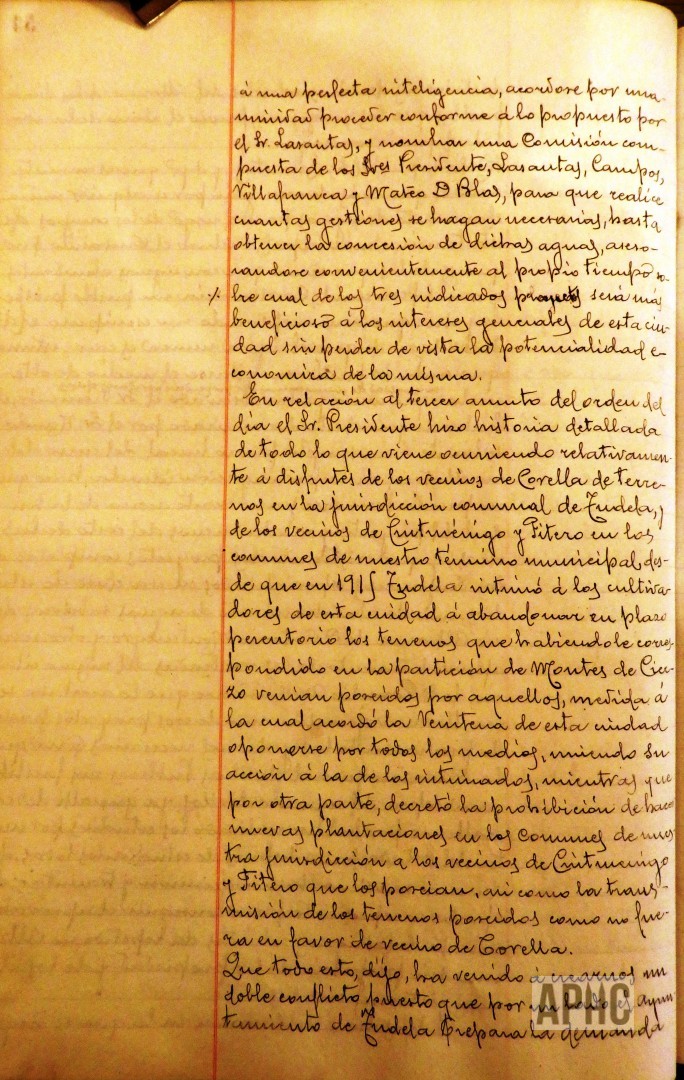 á una perfecta inteligencia, acordose por una-
nimidad proceder conforme á lo propuesto por
el Sr. Lasantas, y nombrar una Comisión com-
puesta de los Sres Presidente, Lasantas, Campos,
Villafranca y Mateo D Blas, para que realice
cuantas gestiones se hagan necesarias, hasta
obtener la concesión de dichas aguas, aseso-
randose convenientemente al propio tiempo so-
bre cual de los tres indicados será más
beneficioso á los intereses generales de esta ciu-
dad sin perder de vista la potencialidad e-
conomica de la misma.
En relación al tercer asunto del orden del
dia el Sr. Presidente hizo historia detallada
de todo lo que viene ocurriendo relativamen-
te á disfrutes de los vecinos de Corella de terre-
nos en la jurisdicción comunal de Tudela, y
de los vecinos de Cintruénigo y Fitero en los
comunes de nuestro término municipal, des-
de que en 1915 Tudela intimó á los cultiva-
dores de esta ciudad á abandonar en plazo
perentorio los terrenos que habiendole corres-
pondido en la partición de Montes de Cier-
zo venian poseidos por aquellos, medida á
la cual acordó la Veintena de esta ciudad
oponerse por todos los medios, uniendo su
acción á la de los intimados, mientras que
por otra parte, decretó la prohibición de hacer
nuevas plantaciones en los comunes de nues-
tra jurisdicción a los vecinos de Cintruenigo
y Fitero que los poseian, asi como la trans-
misión de los terrenos poseidos como no fue-
ra en favor de vecino de Corella.
Que todo esto, dijo, ha venido á crearnos un
doble conflicto puesto que por un lado el ayun-
tamiento de Tudela prepara la demanda
APHC